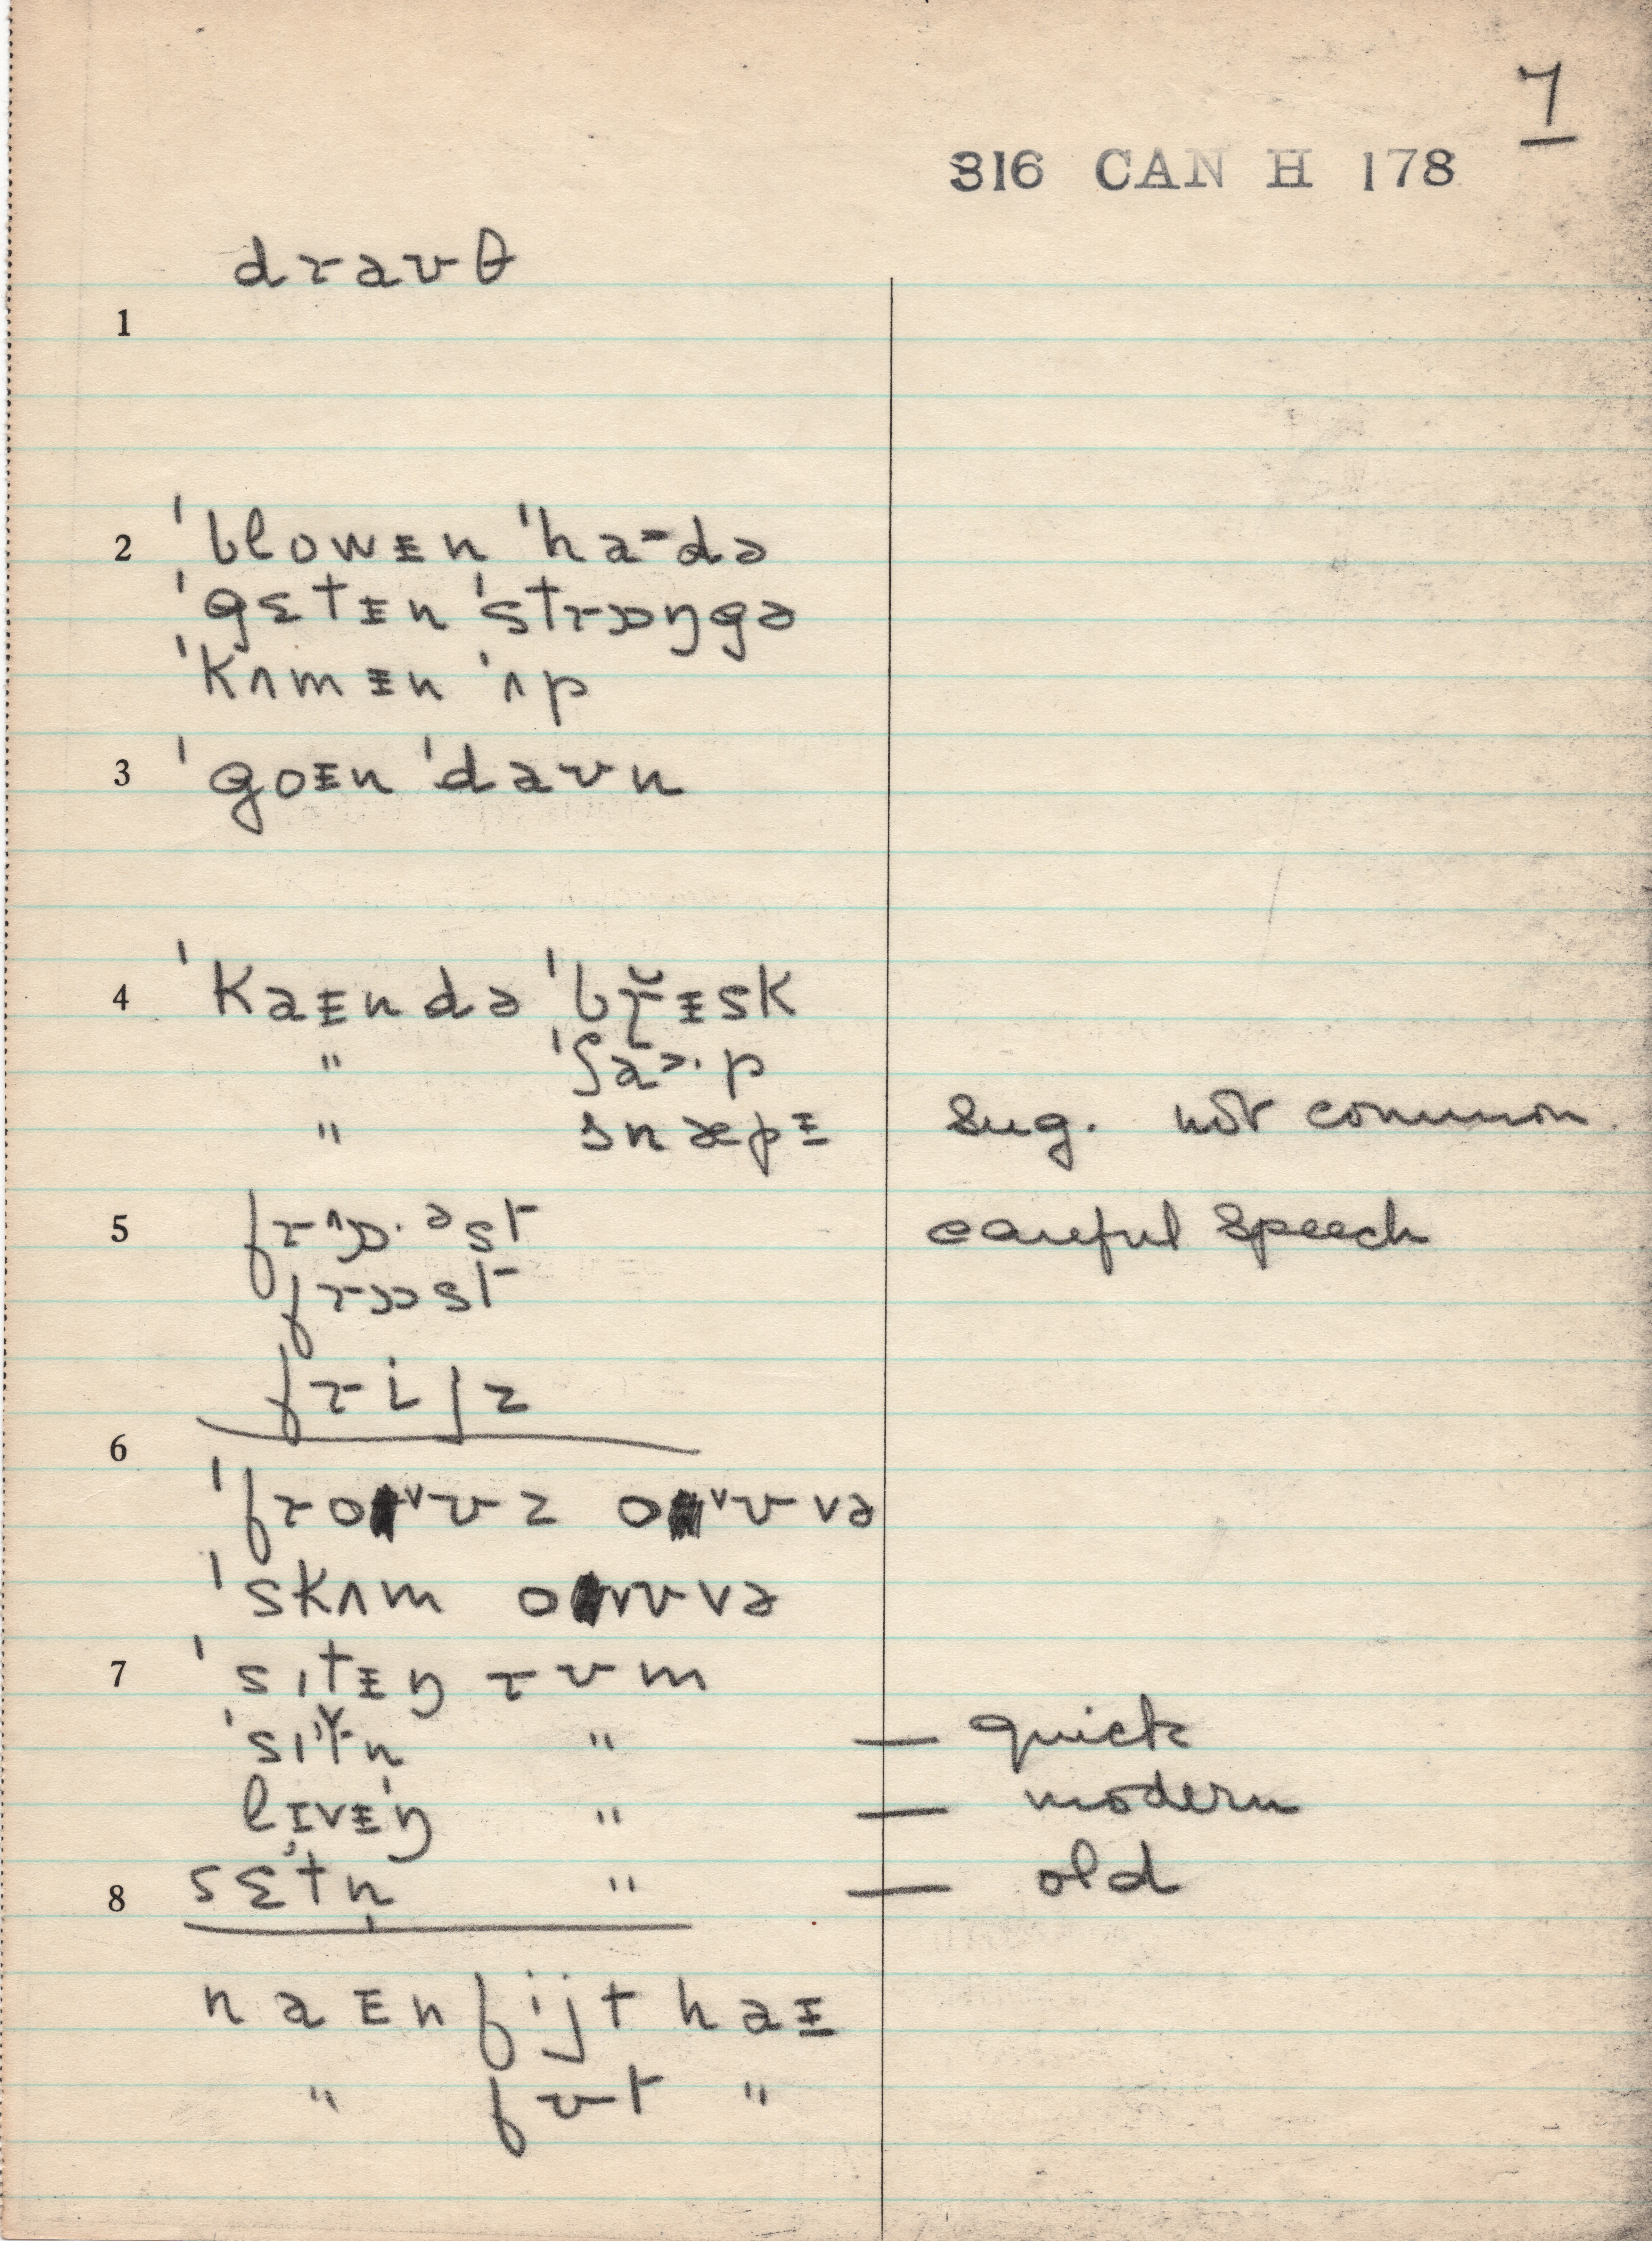 7
316 CAN H 178
draʊθ
1
2 ˈblowɪn ˈhaɚdə
ˈgɛtɪn ˈstrɒŋgə
ˈkʌmɪn ˈʌp
3 ˈgoɪn ˈdaʊn
4 ˈkaɪndə ˈbrɪsk
" ˈʃaɚ·p
" snæpɪ sug. not common.
5 frʌɒ·əst careful speech
frɒst
frijz
6
ˈfroᵛʊz oᵛʊvə
ˈskʌm oᵛʊvə
7 ˈsɪtɪŋ rʊm
ˈsɪtn " — quick
lɪvɪŋ " — modern
8 sɛtn̩ " — old
naɪn fijt haɪ
" fʊt "